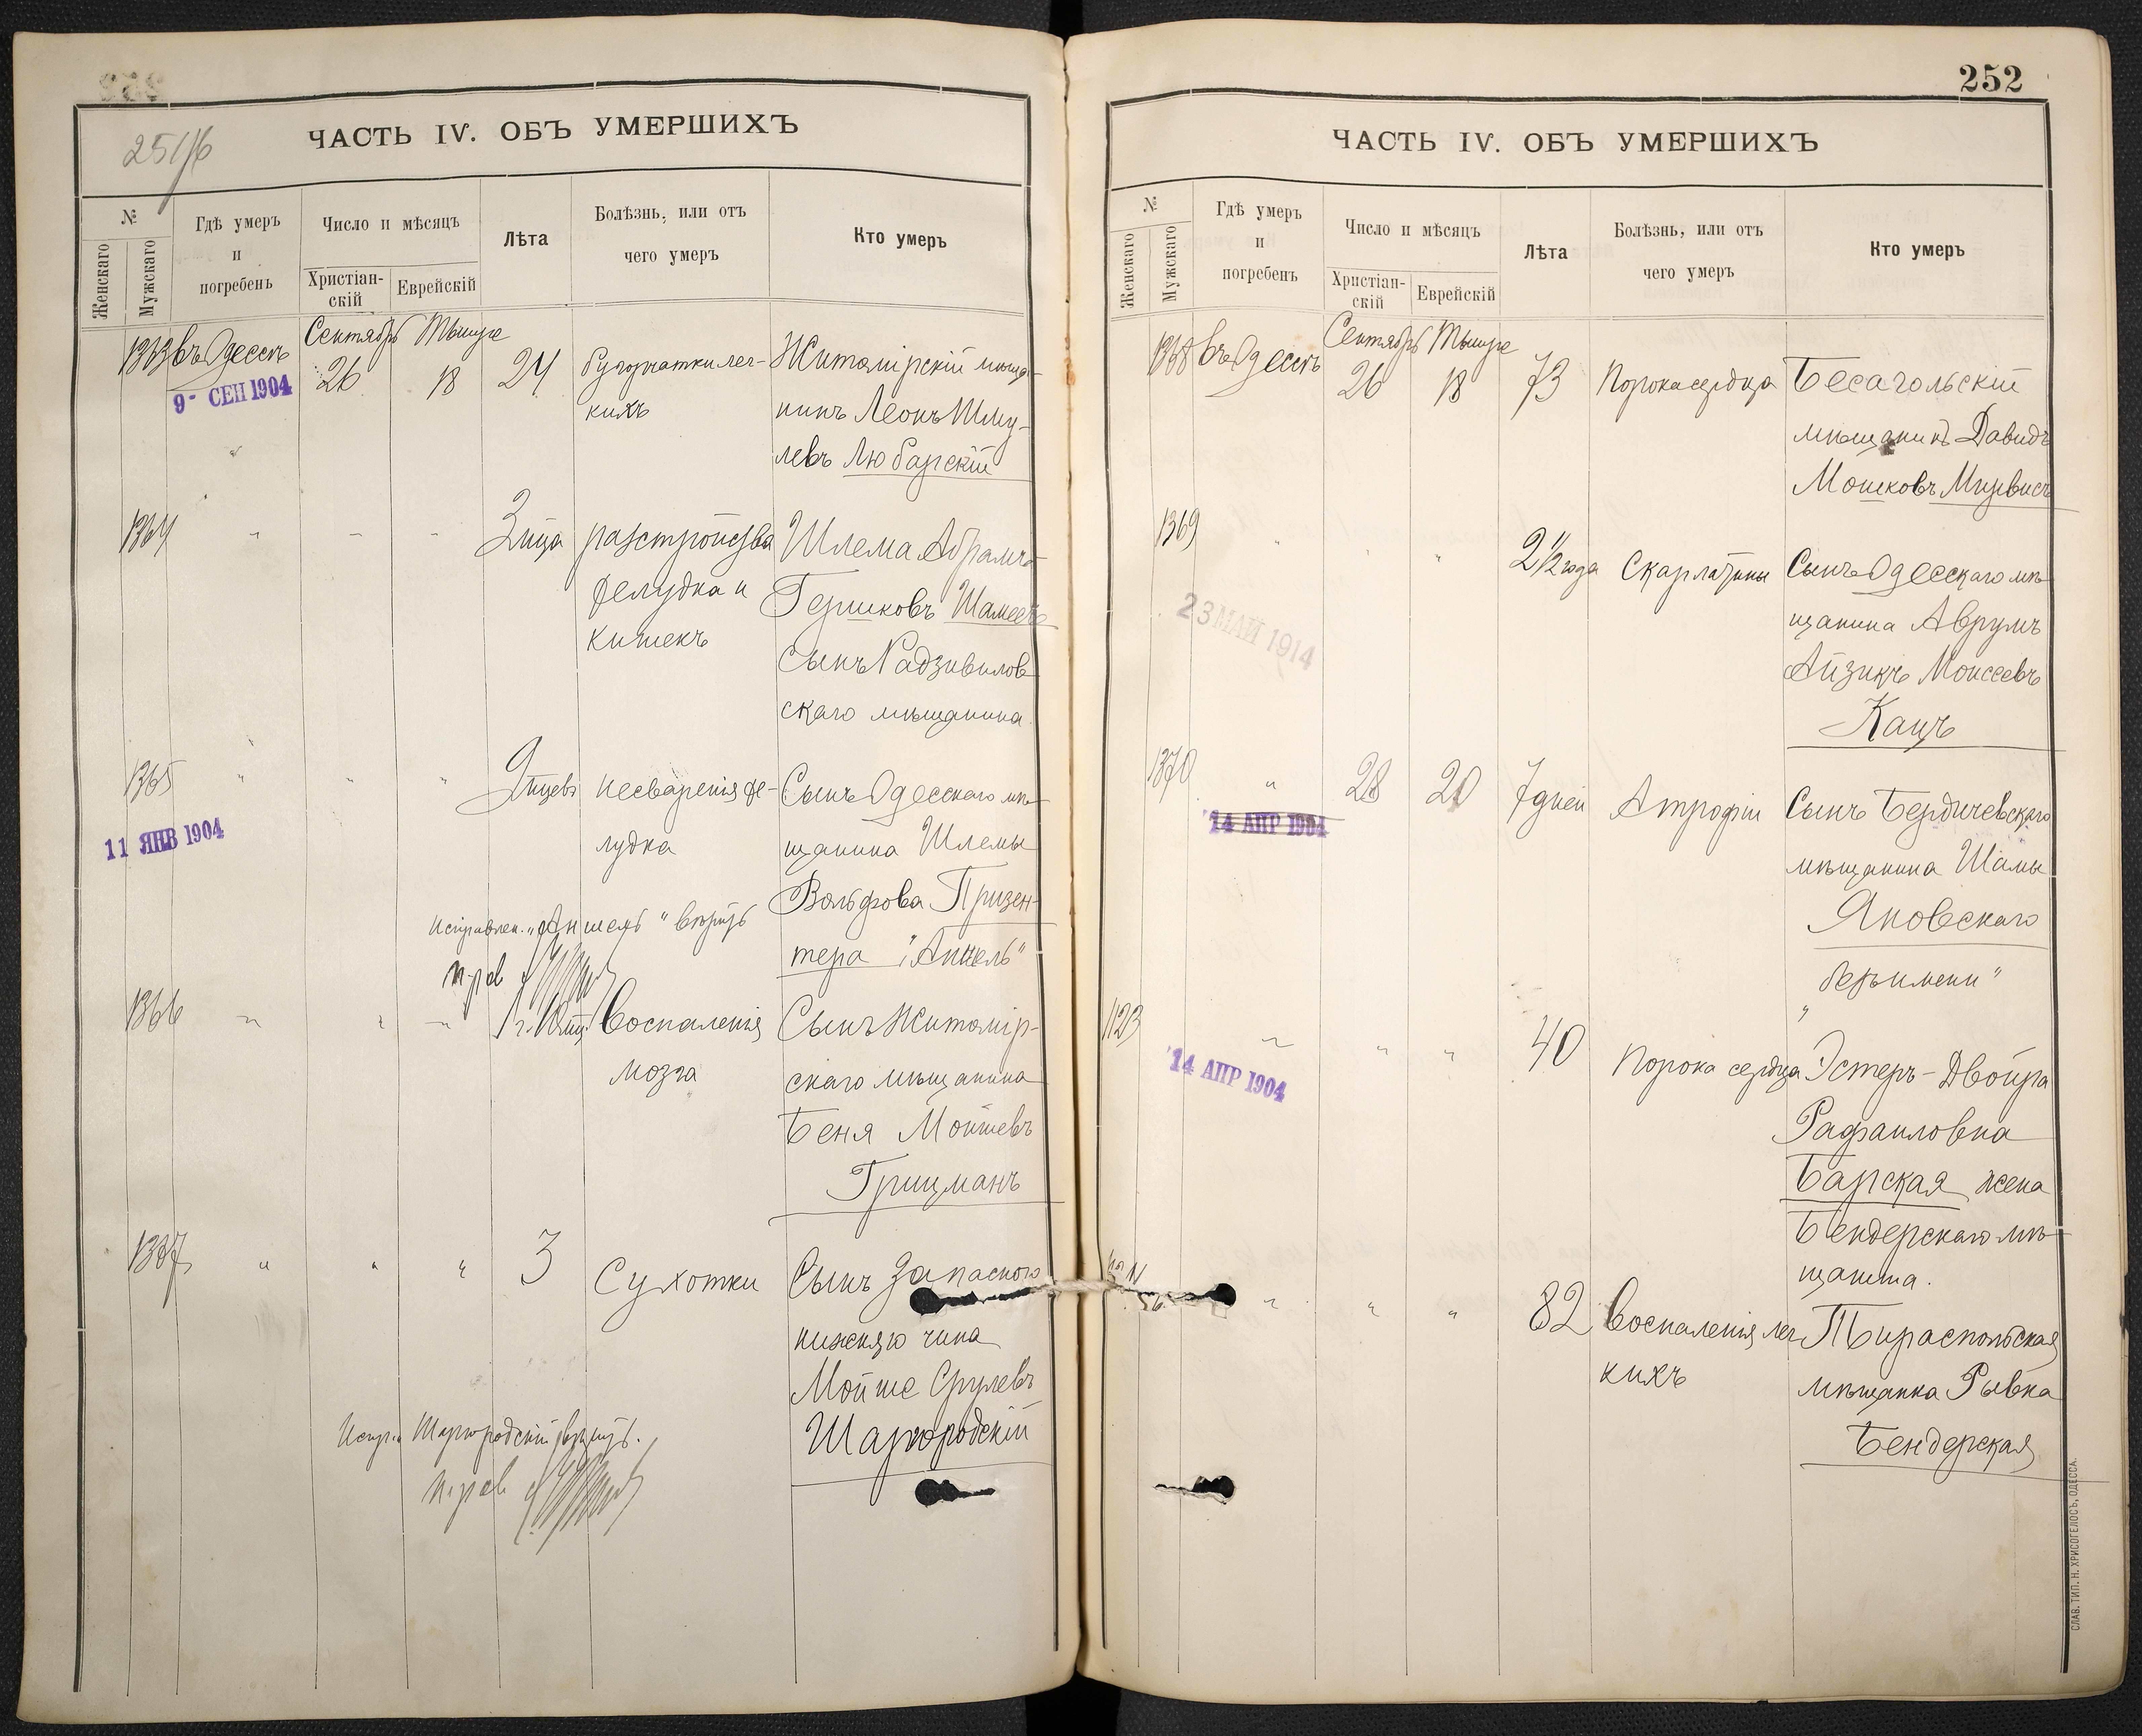 251/б
ЧАСТЬ IV. ОБЪ УМЕРШИХЪ
№
Женскаго
Мужскаго
Гдѣ умеръ
и
погребенъ
Число и мѣсяцъ
Христіан-
скій
Еврейскій
Лѣта
Болѣзнь, или отъ
чего умеръ
Кто умеръ
Сентябрь Тышре
1363 въ Одессѣ 26 18 24 бугорчатки лег-
кихъ
Житомірскій мѣща-
нинъ Леонъ Шму-
левъ Любарскій
9- СЕН 1904
1364 " " " 3 м-ца разстройства
желудка и
кишекъ
Шлема Абрамъ
Гершковъ
сынъ Радзивилов
скаго мѣщанина
1365 " " " 9 м-цевъ несваренія же-
лудка
Сынъ Одесскаго мѣ-
щанина Шлемы
Вольфова Призен-
тера "Аншель"
11 ЯНВ 1904
Исправлен. "Аншель" вѣрить
1366 " " " 1 г. 10 м-ц. Воспаленія
мозга
Сынъ Житомір-
скаго мѣщанина
Беня Мойшевъ
Грицманъ
1367 " " " 3 Сухотки
Сынъ запаснаго
нижняго чина
Мойше Срулевъ
Шаргородскій
Испр. Шаргородскій вѣрить.
252
ЧАСТЬ IV. ОБЪ УМЕРШИХЪ
№
Женскаго
Мужскаго
Гдѣ умеръ
и
погребенъ
Число и мѣсяцъ
Христіан-
скій
Еврейскій
Лѣта
Болѣзнь, или отъ
чего умеръ
Кто умеръ
Сентябрь Тышре
1368 въ Одессѣ 26 18 73 Порока сердца
мѣщанинъ Давидъ
Мошковъ
1369 " " " 2 1/2 года Скарлатины
Сынъ Одесскаго мѣ-
щанина Аврумъ
Айзикъ Моисеевъ
Кацъ
23 МАЙ 1914
1370 " 28 20 7 дней Атрофіи
Сынъ Бердичевскаго
мѣщанина Шамы
Яновскаго
"безъ имени"
14 АПР 1904
1123 " " " 40 Порока сердца
Эстеръ-Двойра
Рафаиловна
Барская жена
Бендерскаго мѣ-
щанина.
14 АПР 1904
" " " 82 Воспаленія лег
кихъ
Тираспольская
мѣщанка Рывка
Бендерская
СЛАВ. ТИП. Н. ХРИСОГЕЛОСЪ, ОДЕССА.